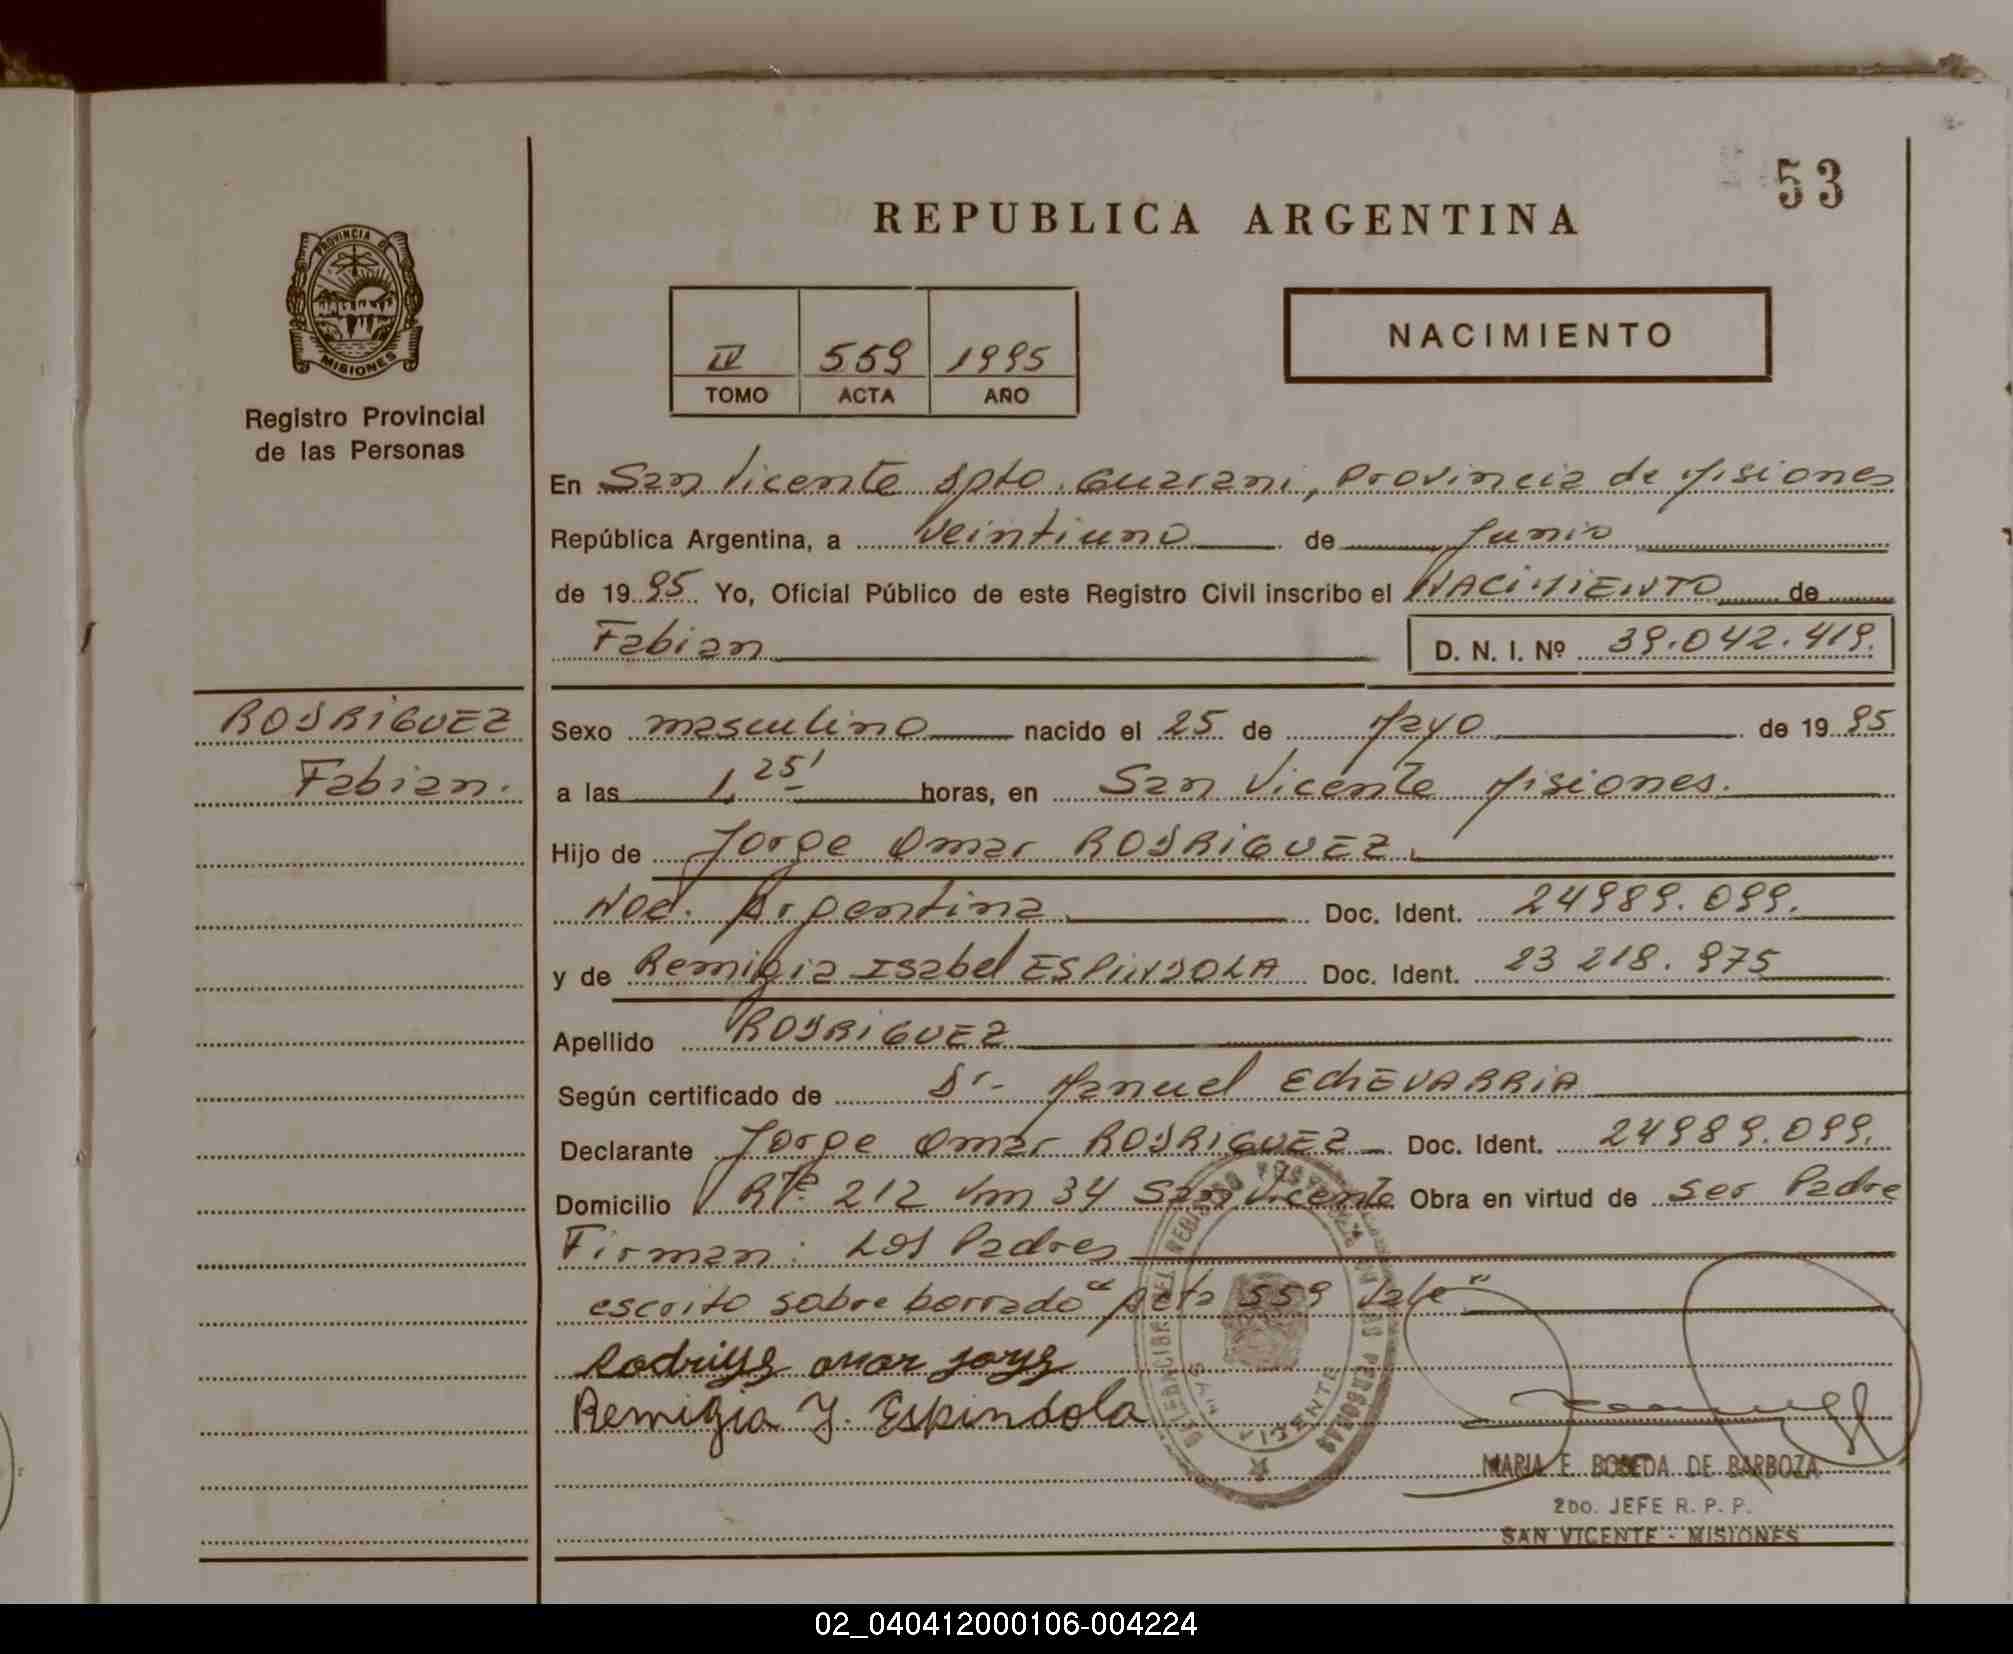 53
REPUBLICA ARGENTINA
PROVINCIA DE
MISIONES
Registro Provincial
de las Personas
IV 559 1995
TOMO ACTA AÑO
NACIMIENTO
En San Vicente Dpto. Guarani, Provincia de Misiones
República Argentina, a veintiuno de Junio
de 1995 Yo, Oficial Público de este Registro Civil inscribo el NACIMIENTO de
Fabian D. N. I. Nº 39.042.419.
RODRIGUEZ
Fabian.
Sexo masculino nacido el 25 de Mayo de 1995
a las 1,25' horas, en San Vicente Misiones.
Hijo de Jorge Omar RODRIGUEZ.
Nac. Argentina Doc. Ident. 24989.099.
y de Remigia Isabel ESPINDOLA Doc. Ident. 23 218.975
Apellido RODRIGUEZ
Según certificado de Dr. Manuel ECHEVARRIA
Declarante Jorge Omar RODRIGUEZ Doc. Ident. 24989.099.
Domicilio Rta. 212 Km 34 San Vicente Obra en virtud de ser Padre
Firman: Los Padres
escrito sobre borrado "Acta 559 Vale"
Rodrigs omar jorge
Remigia Y. Espindola
SAN VICENTE
MARIA E. BOBEDA DE BARBOZA
2DO. JEFE R. P. P.
SAN VICENTE - MISIONES
02_040412000106-004224